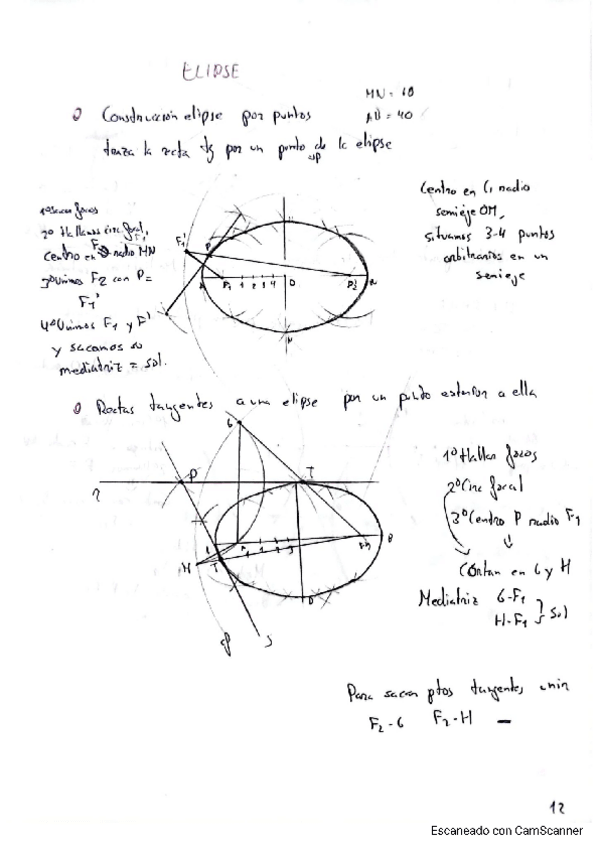 ELIPSE
Construcción elipse por puntos
MN = 60
AB = 40
traza la recta tg por un punto de la elipse
"P"
Centro en C, radio
semieje OM,
situamos 3-4 puntos
arbitrarios en un
semieje
1º Sacar focos
2º Hallamos circ focal,
centro en F2 radio MN
3º Unimos F2 con P =
F1'
4º Unimos F1 y F'
y sacamos su
mediatriz = sol.
F1'
P
A
F1
1 2 3 4
O
F2
B
N
Rectas tangentes a una elipse por un punto exterior a ella
G
P
T
r
1 2 3
F2
B
H
T
S
1º Hallar focos
2º Circ focal
3º Centro P radio F1
Cortan en G y H
Mediatriz G-F1
H-F1
Sol
Para sacar ptos tangentes unir
F2-G F2-H
12
Escaneado con CamScanner